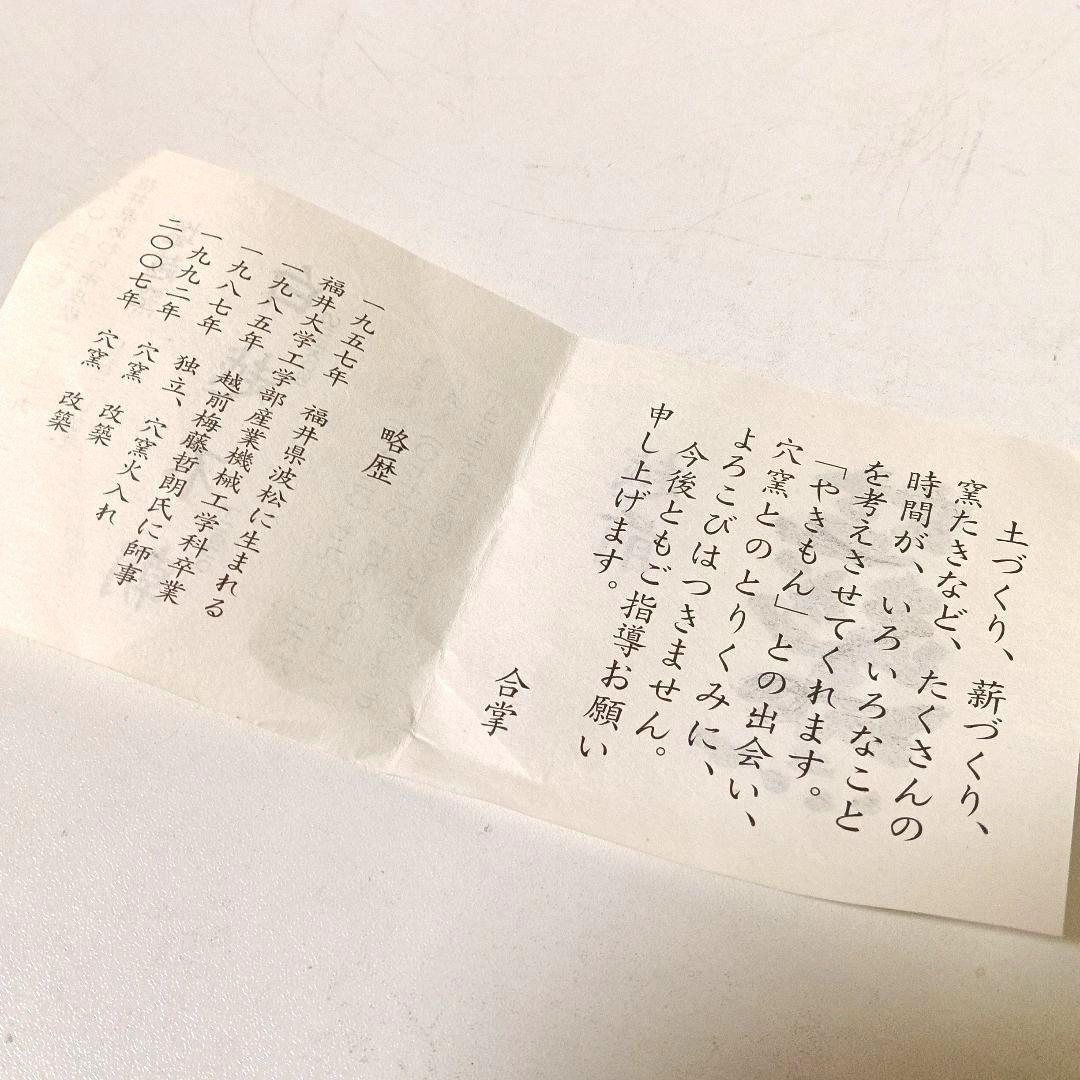 土づくり、薪づくり、
窯たきなど、たくさんの
時間が、いろいろなこと
を考えさせてくれます。
「やきもん」との出会い、
穴窯とのとりくみに、
よろこびはつきません。
今後ともご指導お願い
申し上げます。
合掌
略歴
一九五七年 福井県波松に生まれる
福井大学工学部産業機械工学科卒業
一九八五年 越前梅藤哲朗氏に師事
一九八七年 独立、穴窯火入れ
一九九二年 穴窯 改築
二〇〇七年 穴窯 改築